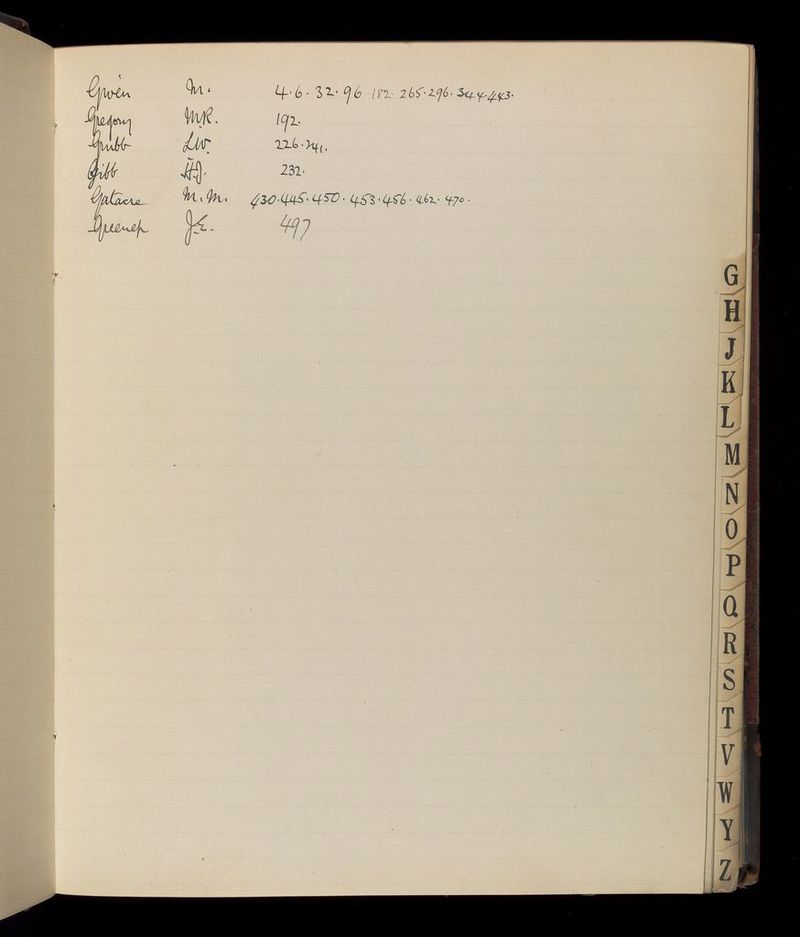 Gwen M. 4. 6. 32. 96. 182. 265. 296. 344. 443.
Gregory M.R. 192.
Grubb L.W. 226. 241.
Gibb H.J. 232.
Gatacre M. M. 430. 445. 450. 453. 456. 462. 470.
J.E. 497
G
H
J
K
L
M
N
O
P
Q
R
S
T
V
W
Y
Z